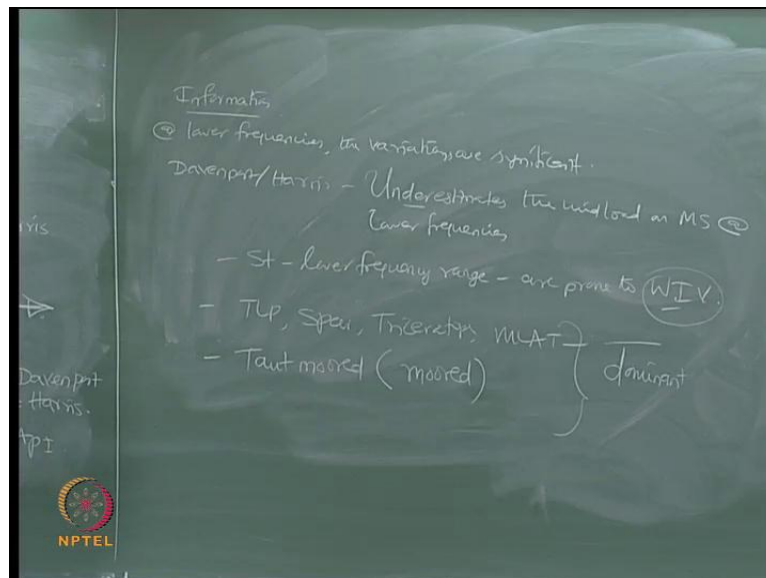 Information
@ lower frequencies, the variations are significant.
Davenport/Harris - Underestimates the wind load on MS @
lower frequencies
- St - lower frequency range - are prone to WIV.
- TLP, Spar, Triceratops, MLAT
dominant
- Taut moored (moored)
rris
Davenport
Harris.
API
NPTEL